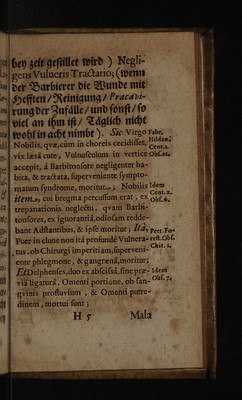 bey zeit gestillet wird ) Negli-
gens Vulneris Tractatio; (wenn
der Barbierer die Wunde mit
Hefften / Reinigung / Præcavi-
rung der Zufälle / und sonst / so
viel an ihm ist / Täglich nicht
wohl in acht nimbt ). Sic Virgo
Fabr. Hildan.
Nobilis, quæ, cùm in choreis cecidisset,
Cent. 1.
vix læsâ cute, Vulnusculum in vertice
Obs. 21.
accepit, â Barbitonsore negligenter ha-
bita, & tractata, superveniente sympto-
matum syndrome, moritur. ; Nobilis
Idem
item, cui bregma percussum erat, ex
Cent. 2. Obs. 6.
trepanationis neglectu, quam Barbi-
tonsores, ex ignorantiâ, odiosam redde-
bant Adstantibus, & ipse moritur; Itâ,
Petr. Fo-
Puer in clune non ità profundè Vulnera-
rest. Obs.
tus, ob Chirurgi imperitiam, superveni-
Chir.
ente phlegmone, & gangrænâ, moritur;
Et Delphenses, duo ex abscissâ, sine præ-
Idem
viâ ligaturâ, Omenti portione, ob san-
Obs. 7.
gvinis profluvium, & Omenti putre-
dinem, mortui sunt;
H 5 Mala